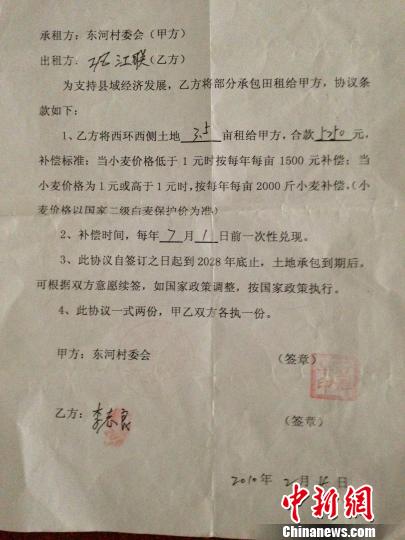 承租方：东河村委会（甲方）
出租方： 江联(乙方)
为支持县域经济发展，乙方将部分承包田租给甲方，协议条
款如下：
1、乙方将西环西侧土地 3.5 亩租给甲方，合款 5250 元，
补偿标准：当小麦价格低于 1 元时按每年每亩 1500 元补偿；当
小麦价格为 1 元或高于 1 元时，按每年每亩 2000 斤小麦补偿。（小
麦价格以国家二级白麦保护价为准）
2、补偿时间，每年 7 月 1 日前一次性兑现。
3、此协议自签订之日起到 2028 年底止，土地承包到期后，
可根据双方意愿续签，如国家政策调整，按国家政策执行。
4、此协议一式两份，甲乙双方各执一份。
甲方：东河村委会 （签章）
乙方：李志良 （签章）
2010 年 2 月 日
中新网
Chinanews.com